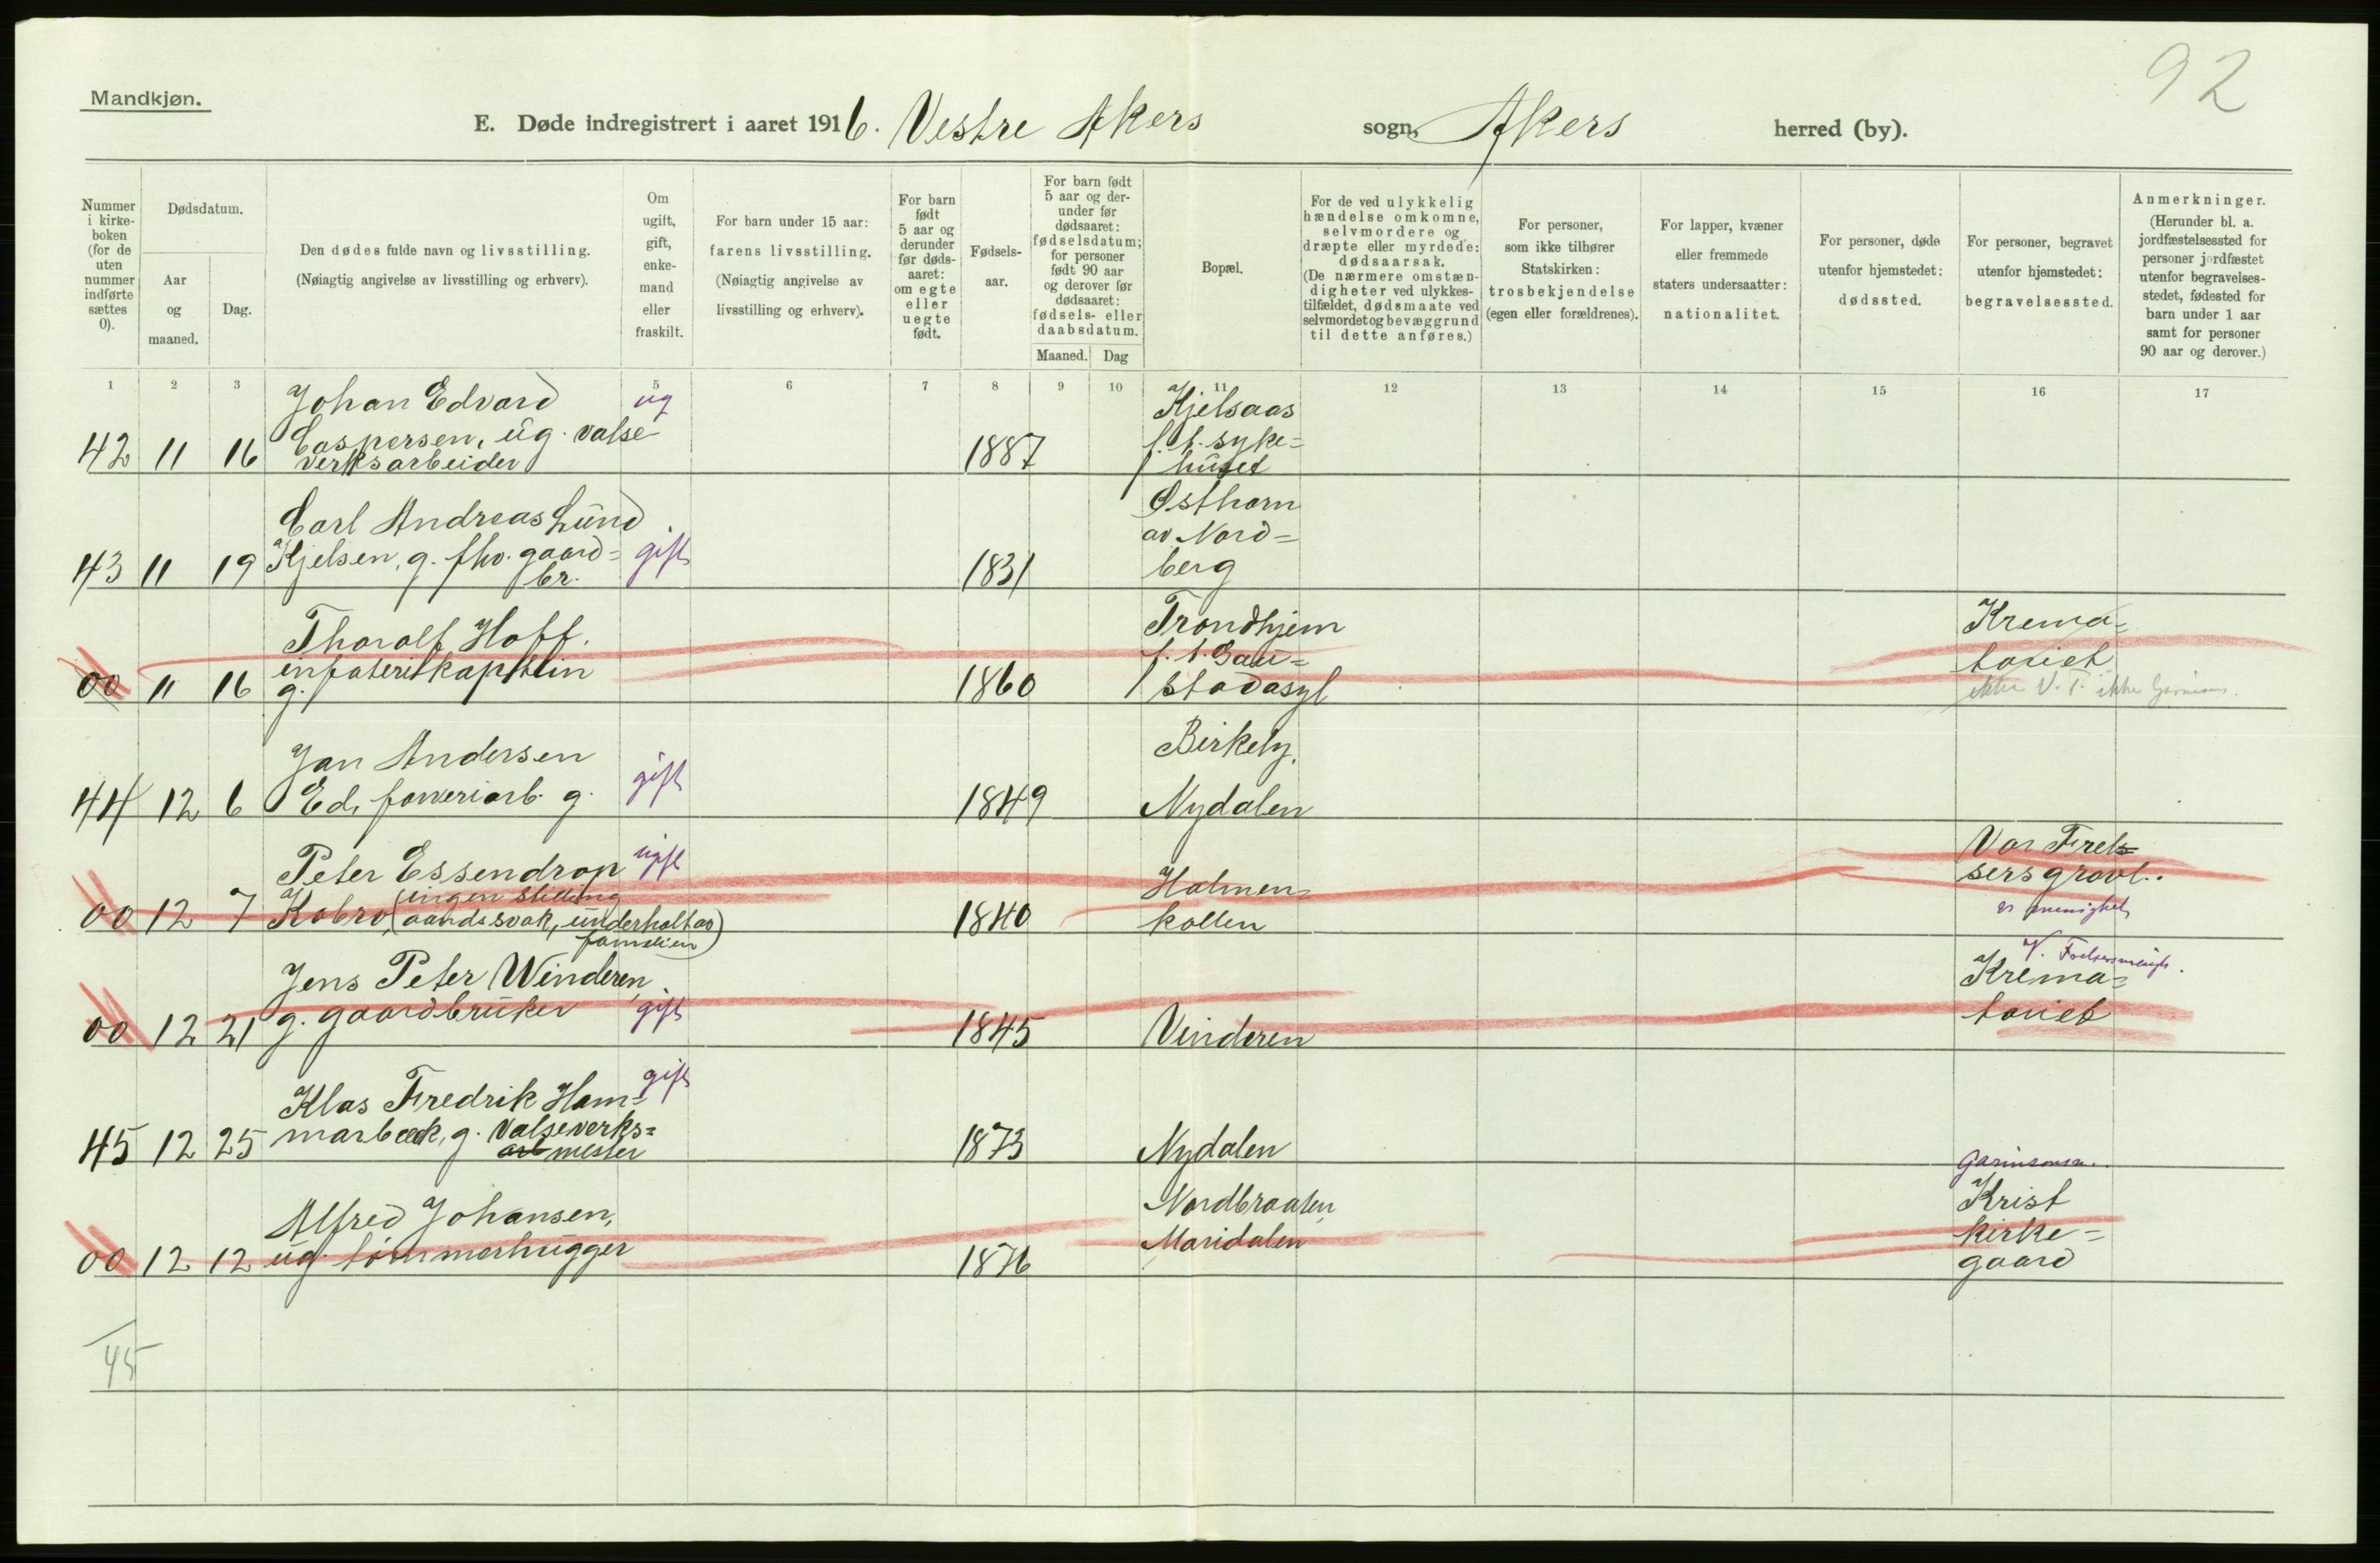 92
Mandkjøn.
E. Døde indregistrert i aaret 1916. Vestre Akers sogn, Akers herred (by).
Nummer i kirke-boken (for de uten nummer indførte sættes 0).
Dødsdatum.
Aar og maaned.
Dag.
Den dødes fulde navn og livsstilling.
(Nøiagtig angivelse av livsstilling og erhverv).
Om ugift, gift, enke-mand eller fraskilt.
For barn under 15 aar: farens livsstilling.
(Nøiagtig angivelse av livsstilling og erhverv).
For barn født 5 aar og derunder før døds-aaret: om egte eller uegte født.
Fødsels-aar.
For barn født 5 aar og der-under før dødsaaret: fødselsdatum; for personer født 90 aar og derover før dødsaaret: fødsels- eller daabsdatum.
Maaned. Dag
Bopæl.
For de ved ulykkelig hændelse omkomne, selvmordere og dræpte eller myrdede: dødsaarsak.
(De nærmere omstæn-digheter ved ulykkes-tilfældet, dødsmaate ved selvmordet og bevæggrund til dette anføres.)
For personer, som ikke tilhører Statskirken: trosbekjendelse (egen eller forældrenes).
For lapper, kvæner eller fremmede staters undersaatter: nationalitet.
For personer, døde utenfor hjemstedet: dødssted.
For personer, begravet utenfor hjemstedet: begravelsessted.
Anmerkninger.
(Herunder bl. a. jordfæstelsessted for personer jordfæstet utenfor begravelses-stedet, fødested for barn under 1 aar samt for personer 90 aar og derover.)
1 2 3 5 6 7 8 9 10 11 12 13 14 15 16 17
Johan Edvard ug Kjelsaas
Caspersen, ug. valse- f. t. syke=
42 11 16 verksarbeider 1887 huset
Carl Andreas Lund Østhorn
Kjelsen, g. fhv. gaard= gift av Nord=
43 11 19 br. 1831 berg
Thoralf Hoff. Trondhjem Krema=
infaterikaptein f. t. Gau= toriet
00 11 16 g. 1860 stadasyl ikke V. F. ikke
Jan Andersen gift Birkely,
44 12 6 Ed, farveriarb. g. 1849 Nydalen
Peter Essendrop ugift Vor Frel=
(ingen stilling Holmen= sers gravl.
00 12 7 Kobro, aandssvak, underholt av 1840 kollen
familien)
V. Frelsersmenigh.
Jens Peter Winderen, Krema=
00 12 21 g. gaardbruker gift 1845 Vinderen toriet
Klas Fredrik Ham= gift
marbeck, g. Valseverks=
45 12 25 arb mester 1873 Nydalen
Garnisons
Alfred Johansen, Nordbraaten Krist
ug. tømmerhugger Maridalen kirke=
00 12 12 1876 gaard
45